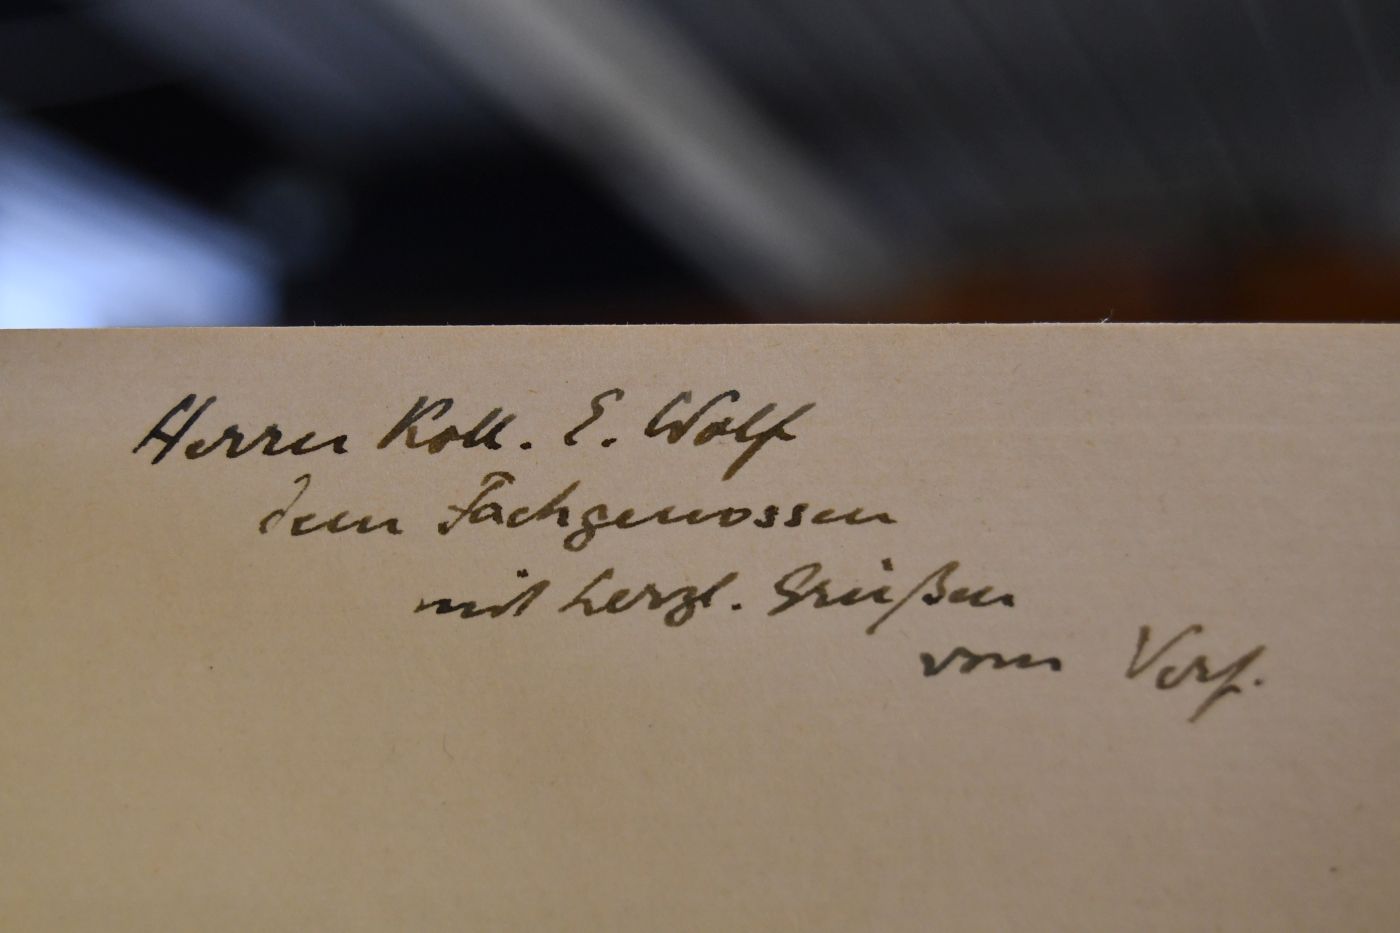 Herrn Koll. E. Wolf
dem Fachgenossen
mit herzl. Grüßen
vom Verf.